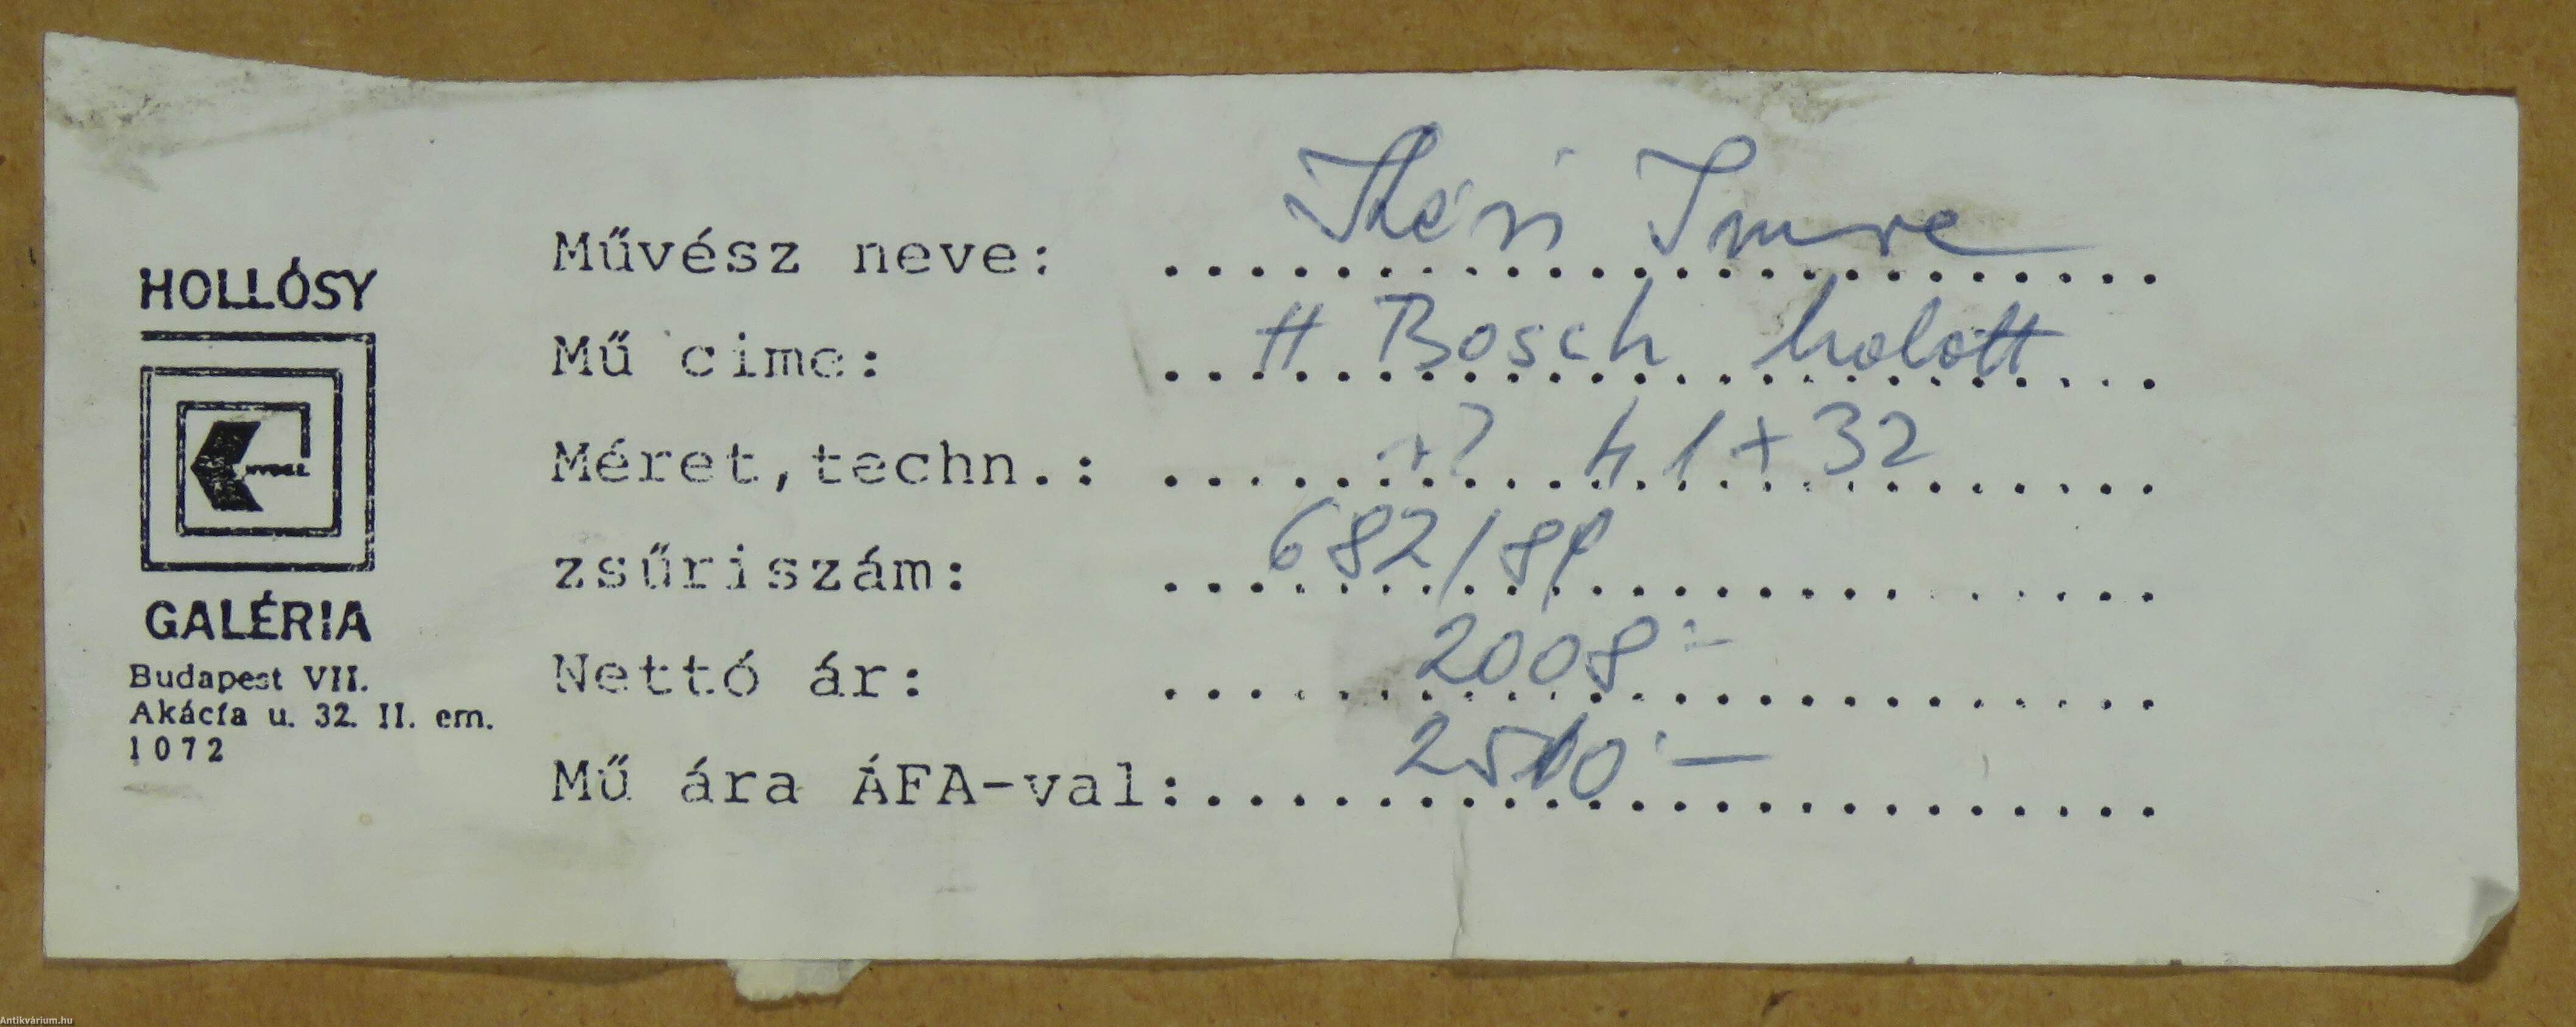 HOLLÓSY
GALÉRIA
Budapest VII.
Akácfa u. 32. II. em.
1072
Művész neve: Kéri Imre
Mű cime: H Bosch halott
Méret,techn.: 41+32
zsűriszám: 682/89
Nettó ár: 2008:-
Mű ára ÁFA-val: 2510:-
Antikvárium.hu